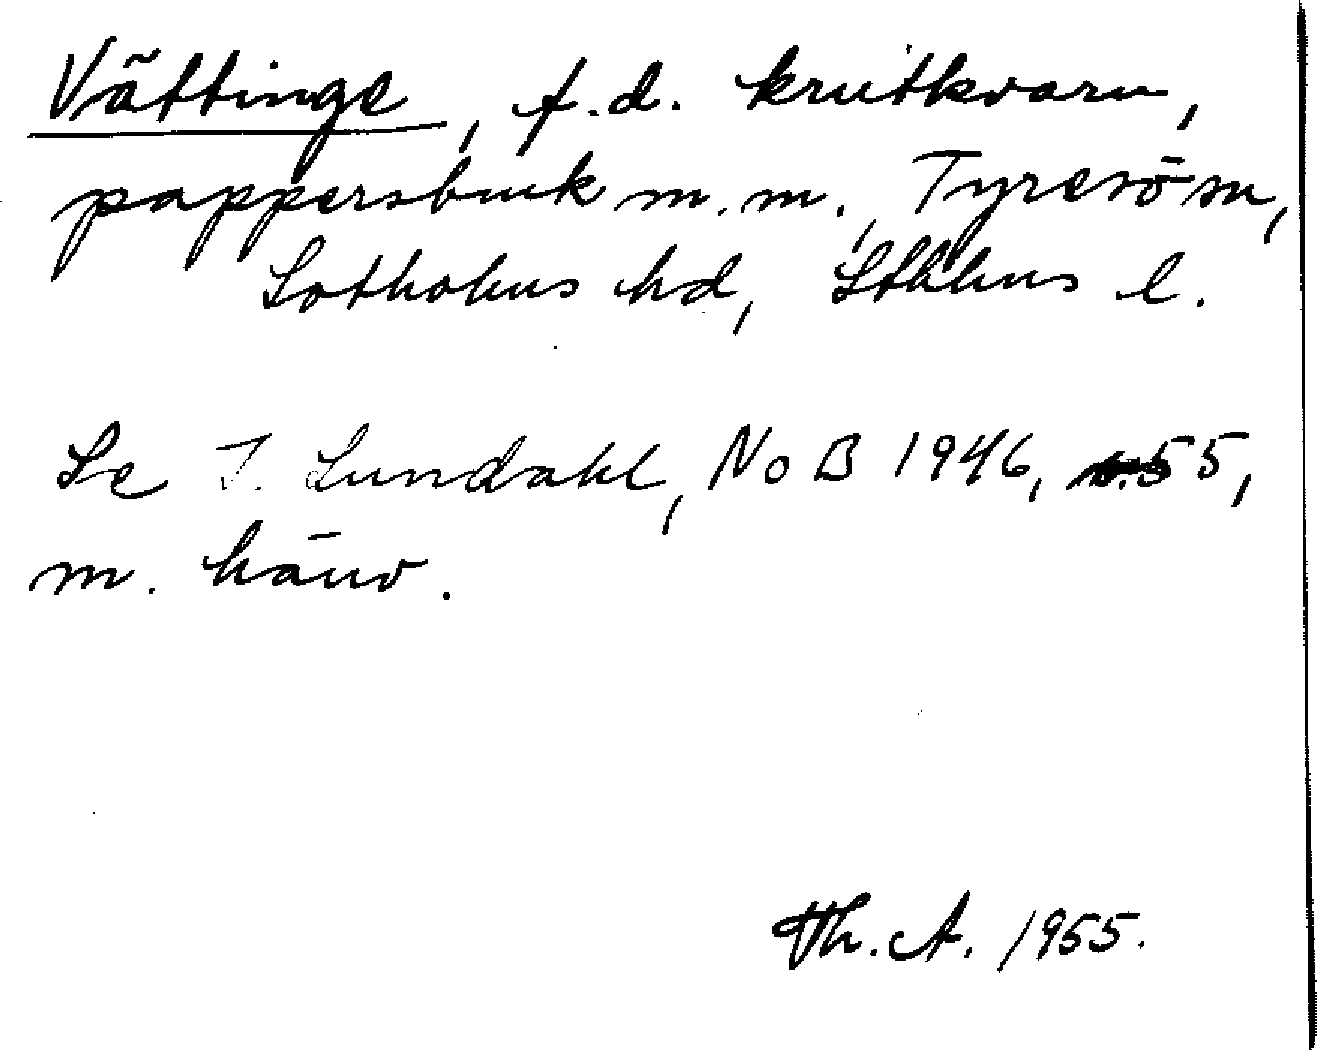 Vättinge, f.d. krutkvarn,
pappersbruk m.m., Tyresö sn,
Sotholms hd, Sthlms l.
Se I. Lundahl, NoB 1946, s. 55,
m. hänv.
Th. A. 1955.